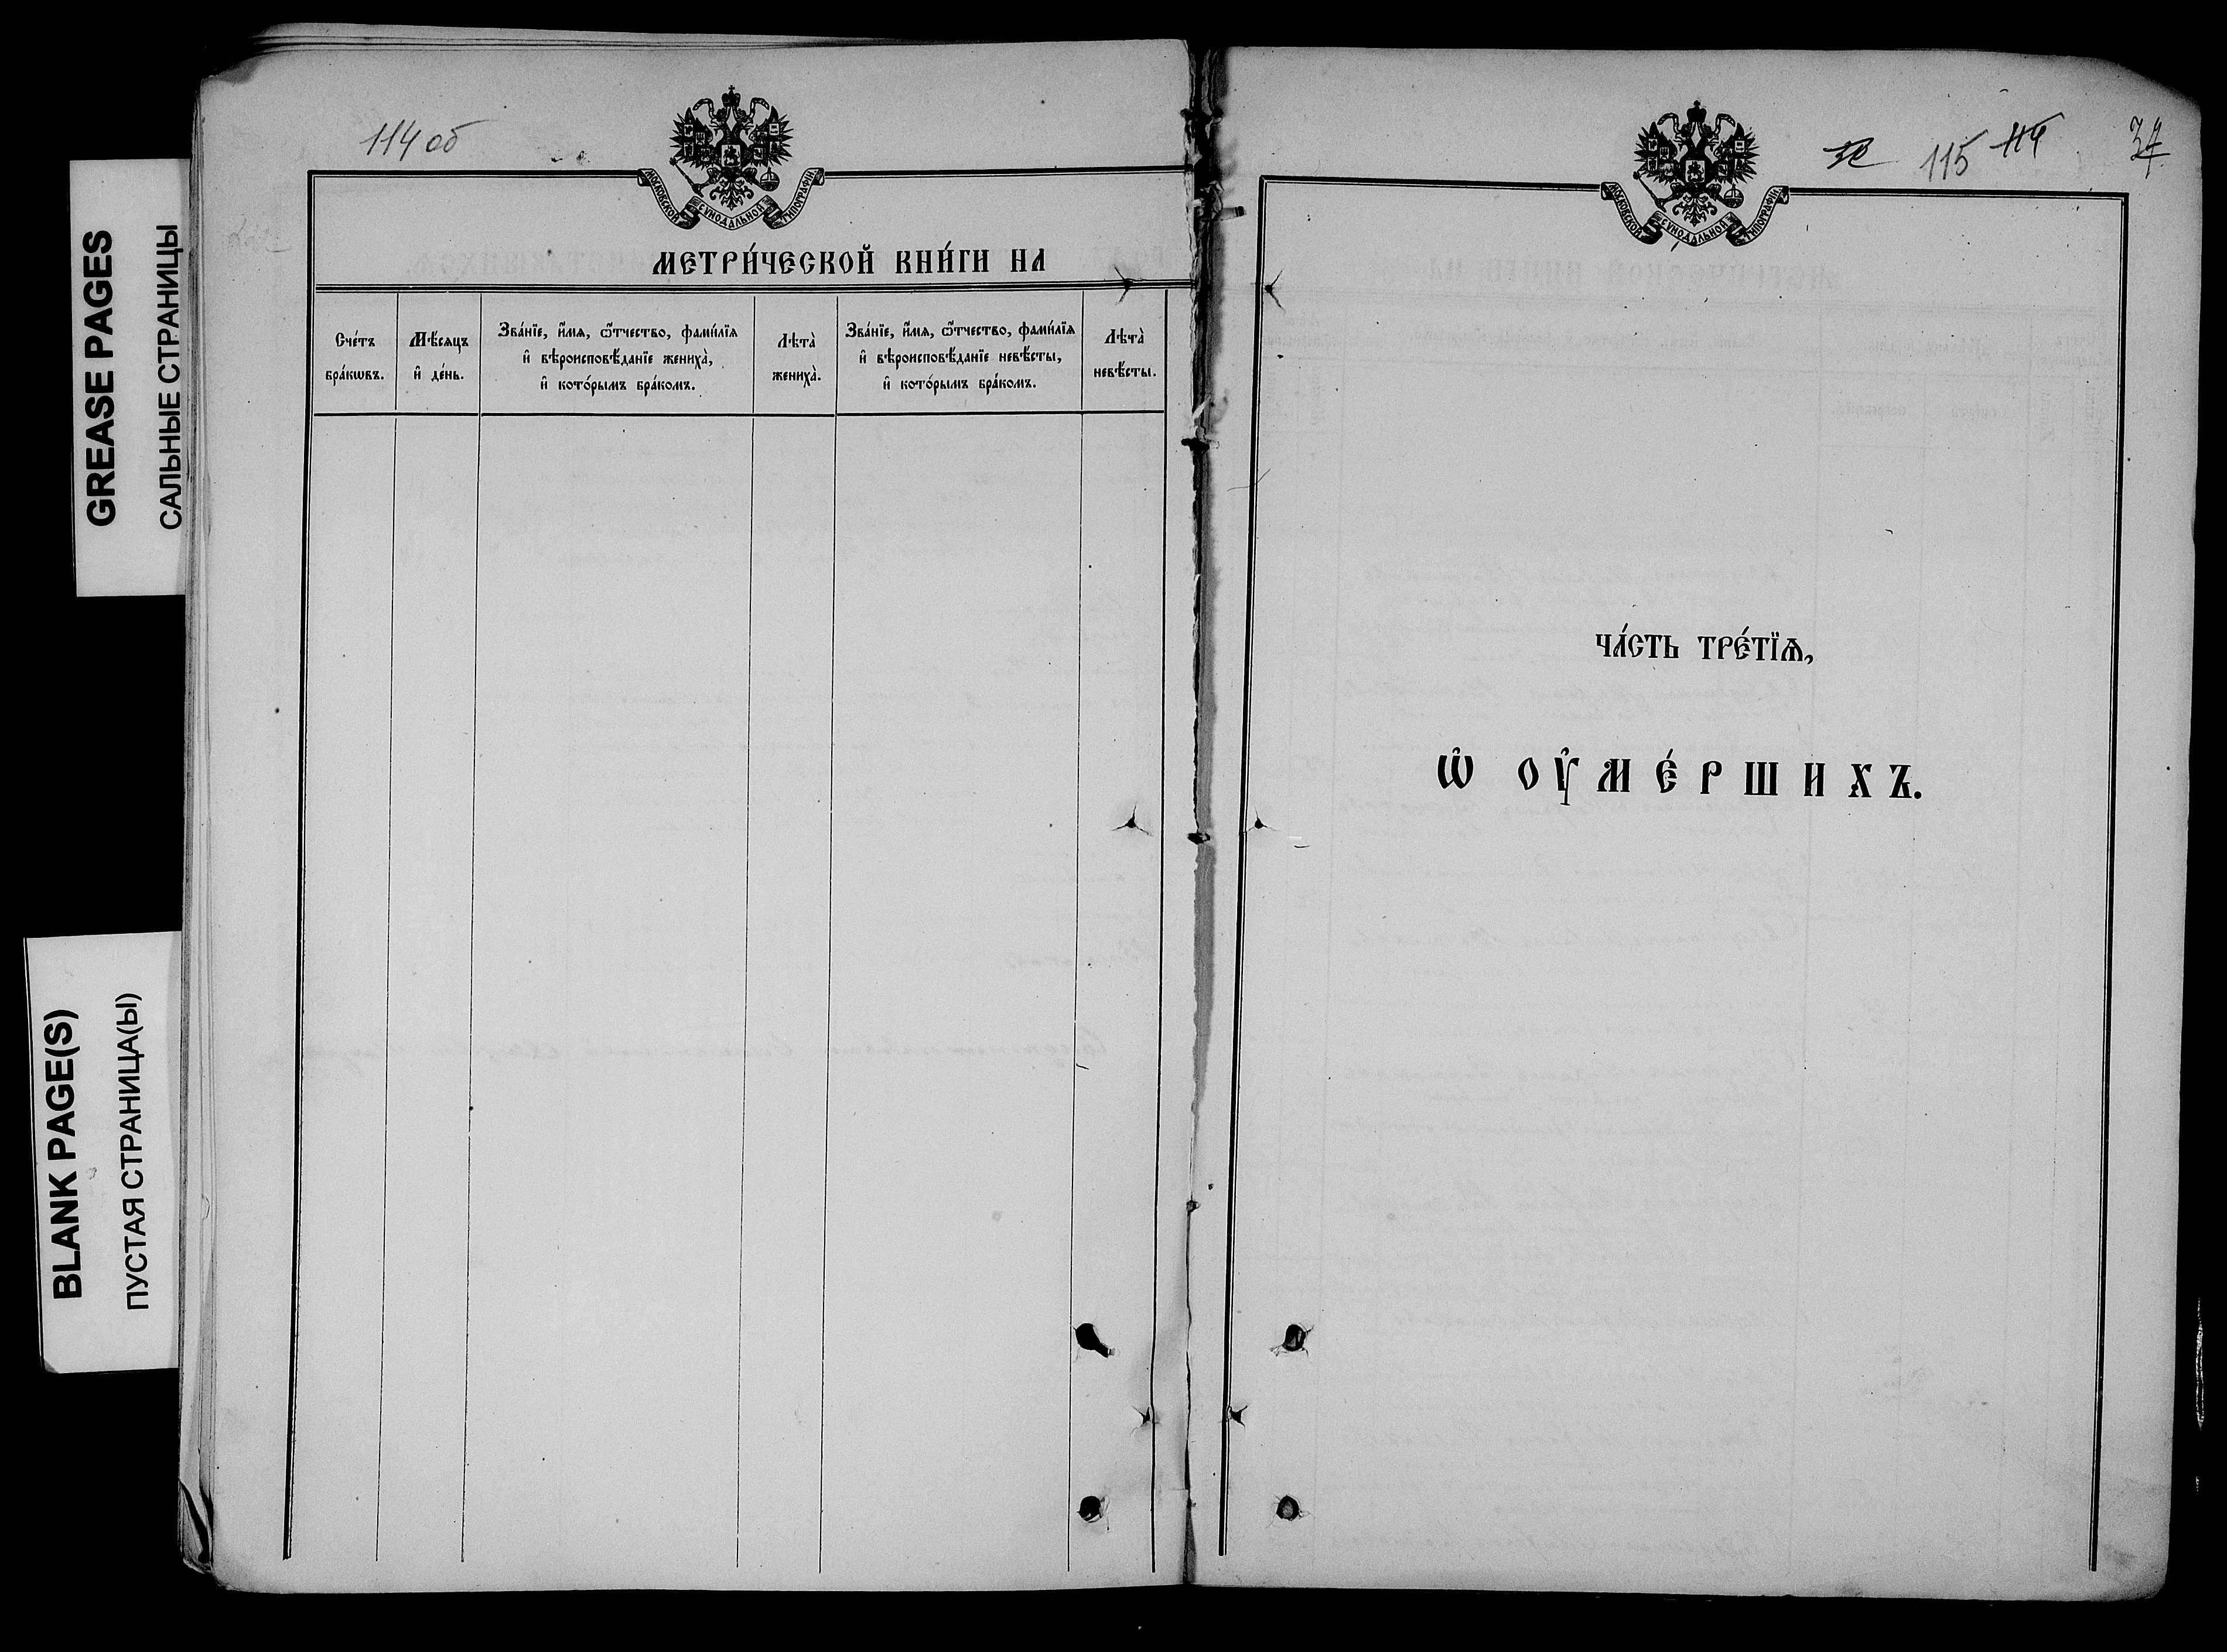 GREASE PAGES
САЛЬНЫЕ СТРАНИЦЫ
BLANK PAGE(S)
ПУСТАЯ СТРАНИЦА(Ы)
114 об
МОСКОВСКОЙ СѴНОДАЛЬНОЙ ТИПОГРАФІИ
МЕТРИ́ЧЕСКОЙ КНИ́ГИ НА
Сче́тъ
бра́кѡвъ.
Мѣ́сяцъ
и҆ де́нь.
Зва́нїе, и҆́мя, ѻ҆́тчество, фами́лїя
и҆ вѣроисповѣ́данїе жениха̀,
и҆ кото́рымъ бра́комъ.
Лѣта̀
жениха̀.
Зва́нїе, и҆́мя, ѻ҆́тчество, фами́лїя
и҆ вѣроисповѣ́данїе невѣ́сты,
и҆ кото́рымъ бра́комъ.
Лѣта̀
невѣ́сты.
115 114
МОСКОВСКОЙ СѴНОДАЛЬНОЙ ТИПОГРАФІИ
ЧА́СТЬ ТРЕ́ТЇѦ,
Ѡ҆ ОУ҆МЕ́РШИХЪ.